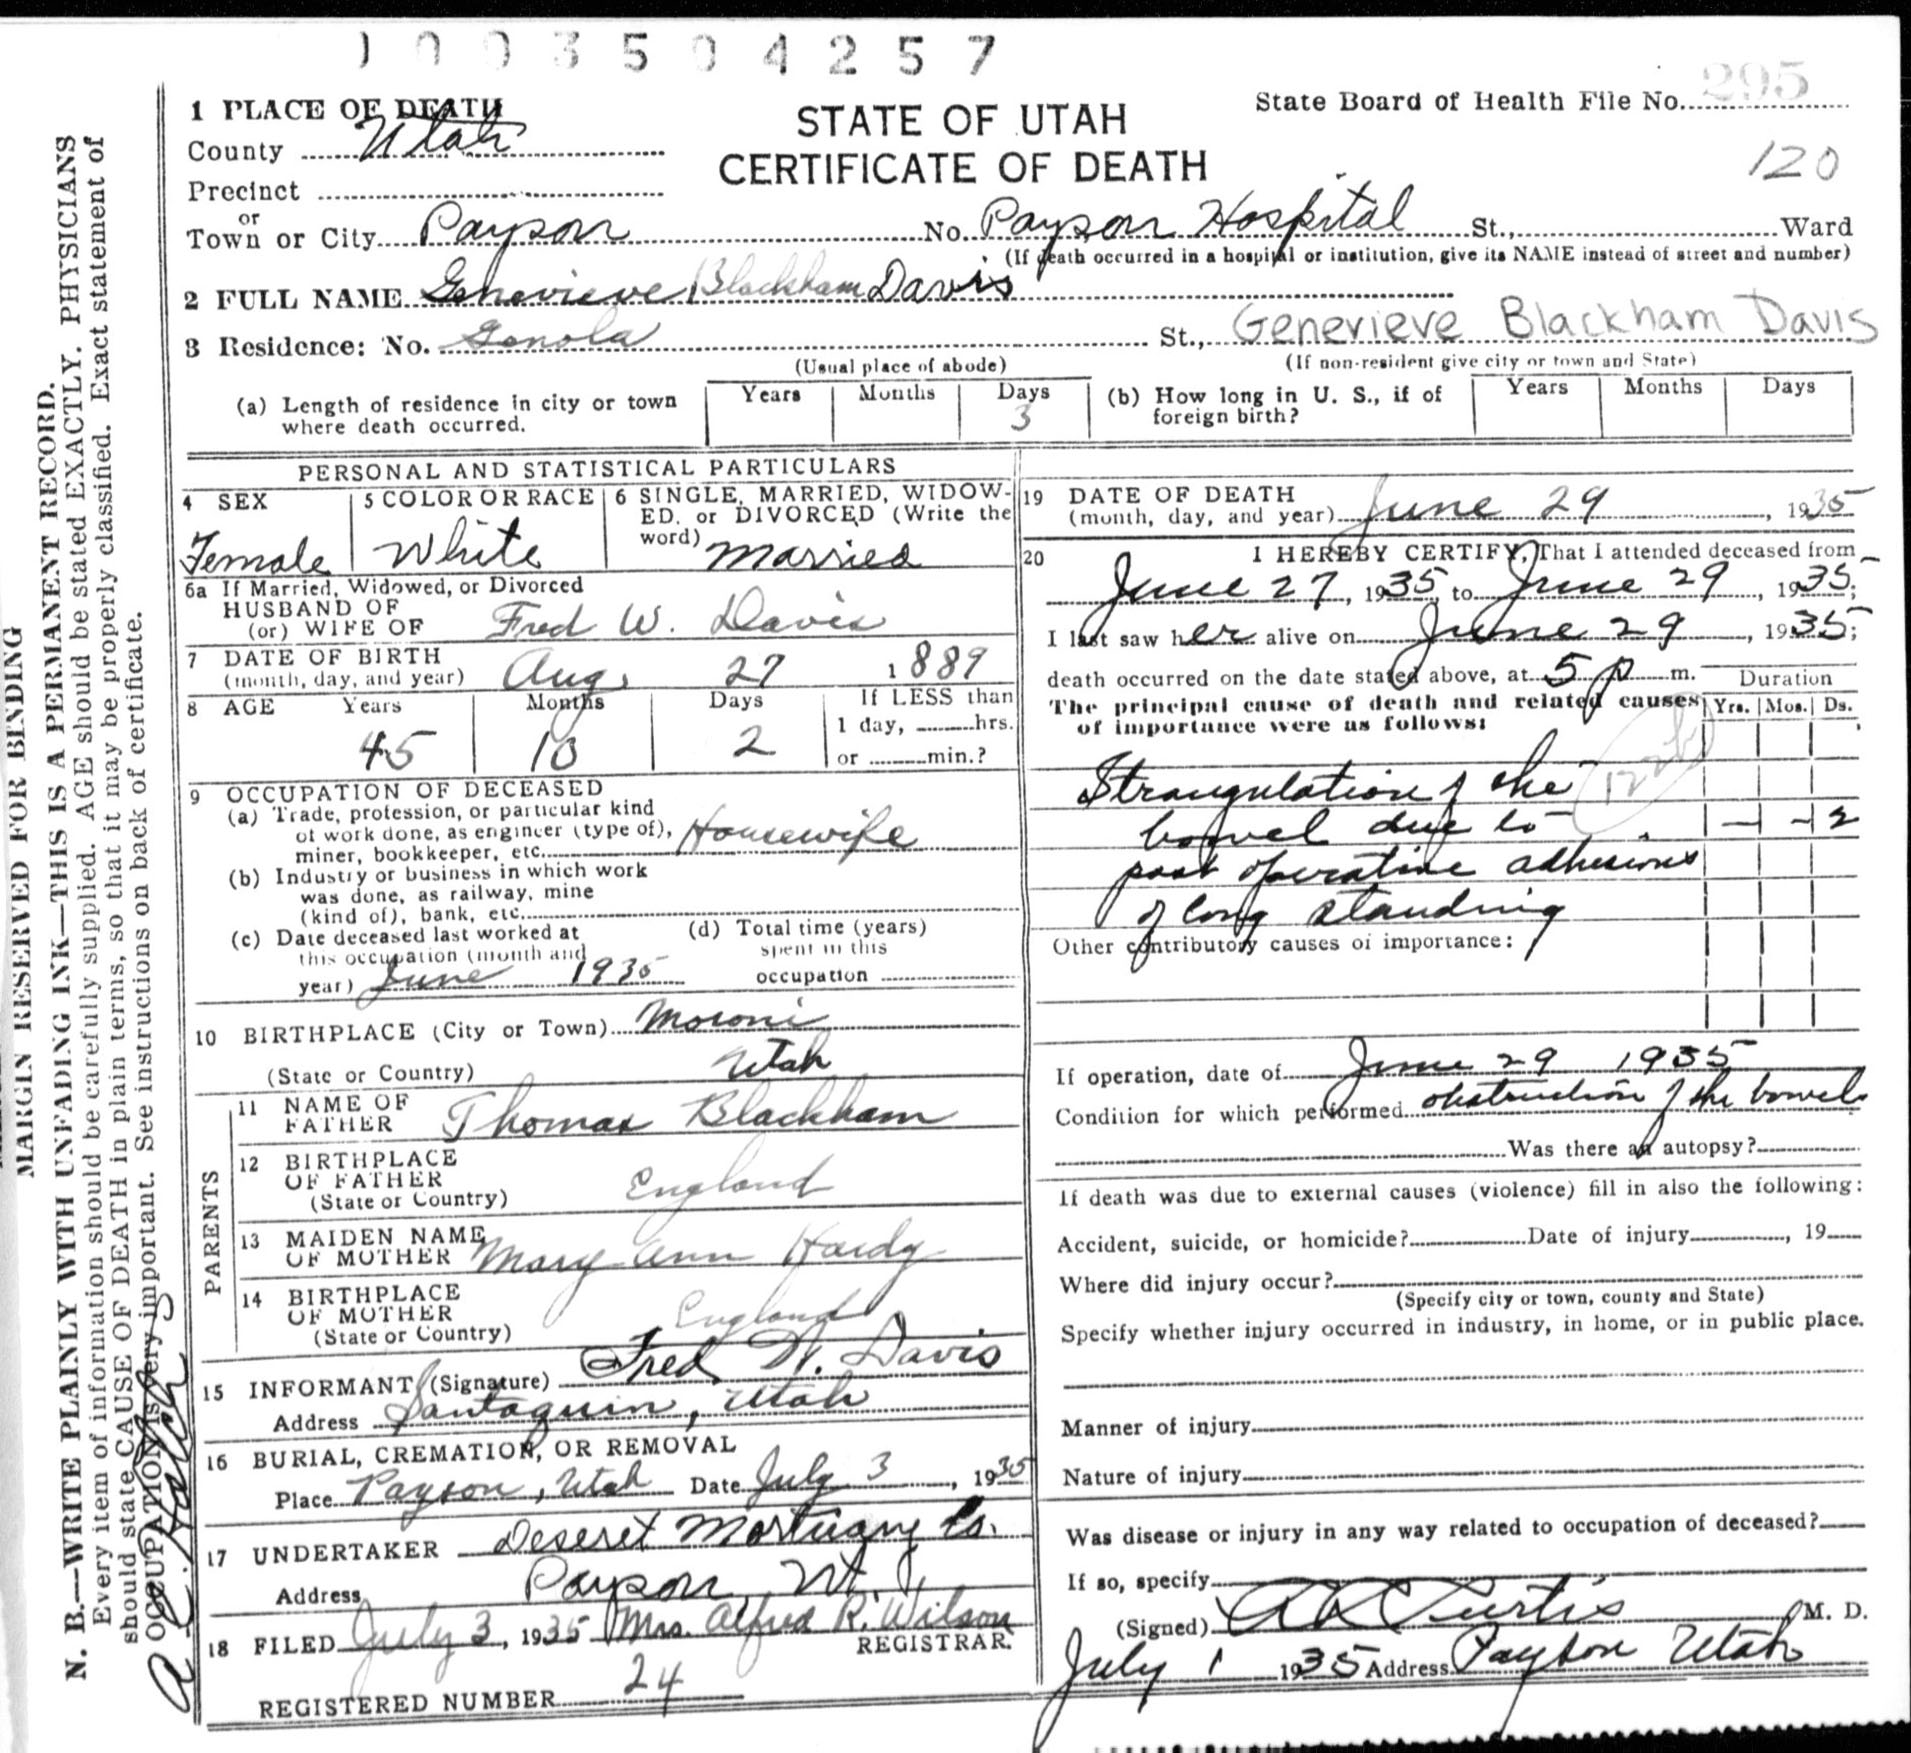 1003504257
295
1 PLACE OF DEATH
STATE OF UTAH
CERTIFICATE OF DEATH
State Board of Health File No.
120
County Utah
Precinct
or
Town or City Payson No. Payson Hospital St., Ward
(If death occurred in a hospital or institution, give its NAME instead of street and number)
2 FULL NAME Genevieve Blackham Davis
3 Residence: No. Genola St., Genevieve Blackham Davis
(Usual place of abode) (If non-resident give city or town and State)
(a) Length of residence in city or town where death occurred. Years Months Days 3
(b) How long in U. S., if of foreign birth? Years Months Days
PERSONAL AND STATISTICAL PARTICULARS
4 SEX Female
5 COLOR OR RACE White
6 SINGLE, MARRIED, WIDOW-
ED, or DIVORCED (Write the
word) Married
6a If Married, Widowed, or Divorced
HUSBAND OF
(or) WIFE OF Fred W. Davis
7 DATE OF BIRTH
(month, day, and year) Aug 27 1889
8 AGE Years Months Days If LESS than
45 10 2 1 day, hrs.
or min.?
9 OCCUPATION OF DECEASED
(a) Trade, profession, or particular kind
of work done, as engineer (type of),
miner, bookkeeper, etc. Housewife
(b) Industry or business in which work
was done, as railway, mine
(kind of), bank, etc.
(c) Date deceased last worked at
this occupation (month and
year) June 1935
(d) Total time (years)
spent in this
occupation
10 BIRTHPLACE (City or Town) Moroni
(State or Country) Utah
PARENTS
11 NAME OF
FATHER Thomas Blackham
12 BIRTHPLACE
OF FATHER
(State or Country) England
13 MAIDEN NAME
OF MOTHER Mary Ann Hardy
14 BIRTHPLACE
OF MOTHER
(State or Country) England
15 INFORMANT (Signature) Fred W. Davis
Address Santaquin, Utah
16 BURIAL, CREMATION, OR REMOVAL
Place Payson, Utah Date July 3, 1935
17 UNDERTAKER Deseret Mortuary Co.
Address Payson Ut.
18 FILED July 3, 1935 Mrs. Alfred R. Wilson
REGISTRAR.
REGISTERED NUMBER 24
19 DATE OF DEATH
(month, day, and year) June 29, 1935
20 I HEREBY CERTIFY, That I attended deceased from
June 27, 1935, to June 29, 1935;
I last saw her alive on June 29, 1935;
death occurred on the date stated above, at 5 p m.
Duration
The principal cause of death and related causes
of importance were as follows: Yrs. Mos. Ds.
122b
Strangulation of the
bowel due to — - 2
post operative adhesions
of long standing
Other contributory causes of importance:
If operation, date of June 29 1935
Condition for which performed obstruction of the bowel
Was there an autopsy?
If death was due to external causes (violence) fill in also the following:
Accident, suicide, or homicide? Date of injury, 19
Where did injury occur?
(Specify city or town, county and State)
Specify whether injury occurred in industry, in home, or in public place.
Manner of injury
Nature of injury
Was disease or injury in any way related to occupation of deceased?
If so, specify
(Signed) A R Curtis M. D.
July 1 1935 Address Payson Utah
MARGIN RESERVED FOR BINDING
N. B.—WRITE PLAINLY WITH UNFADING INK—THIS IS A PERMANENT RECORD.
Every item of information should be carefully supplied. AGE should be stated EXACTLY. PHYSICIANS
should state CAUSE OF DEATH in plain terms, so that it may be properly classified. Exact statement of
OCCUPATION is very important. See instructions on back of certificate.